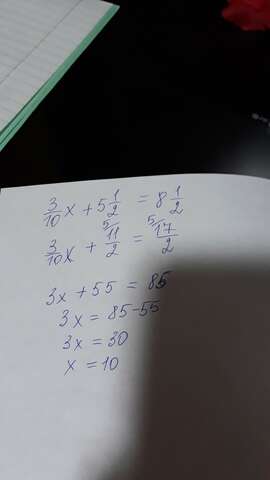 3/10 x + 5 1/2 = 8 1/2
3/10 x + 5/ 11/2 = 5/ 17/2
3x + 55 = 85
3x = 85-55
3x = 30
x = 10